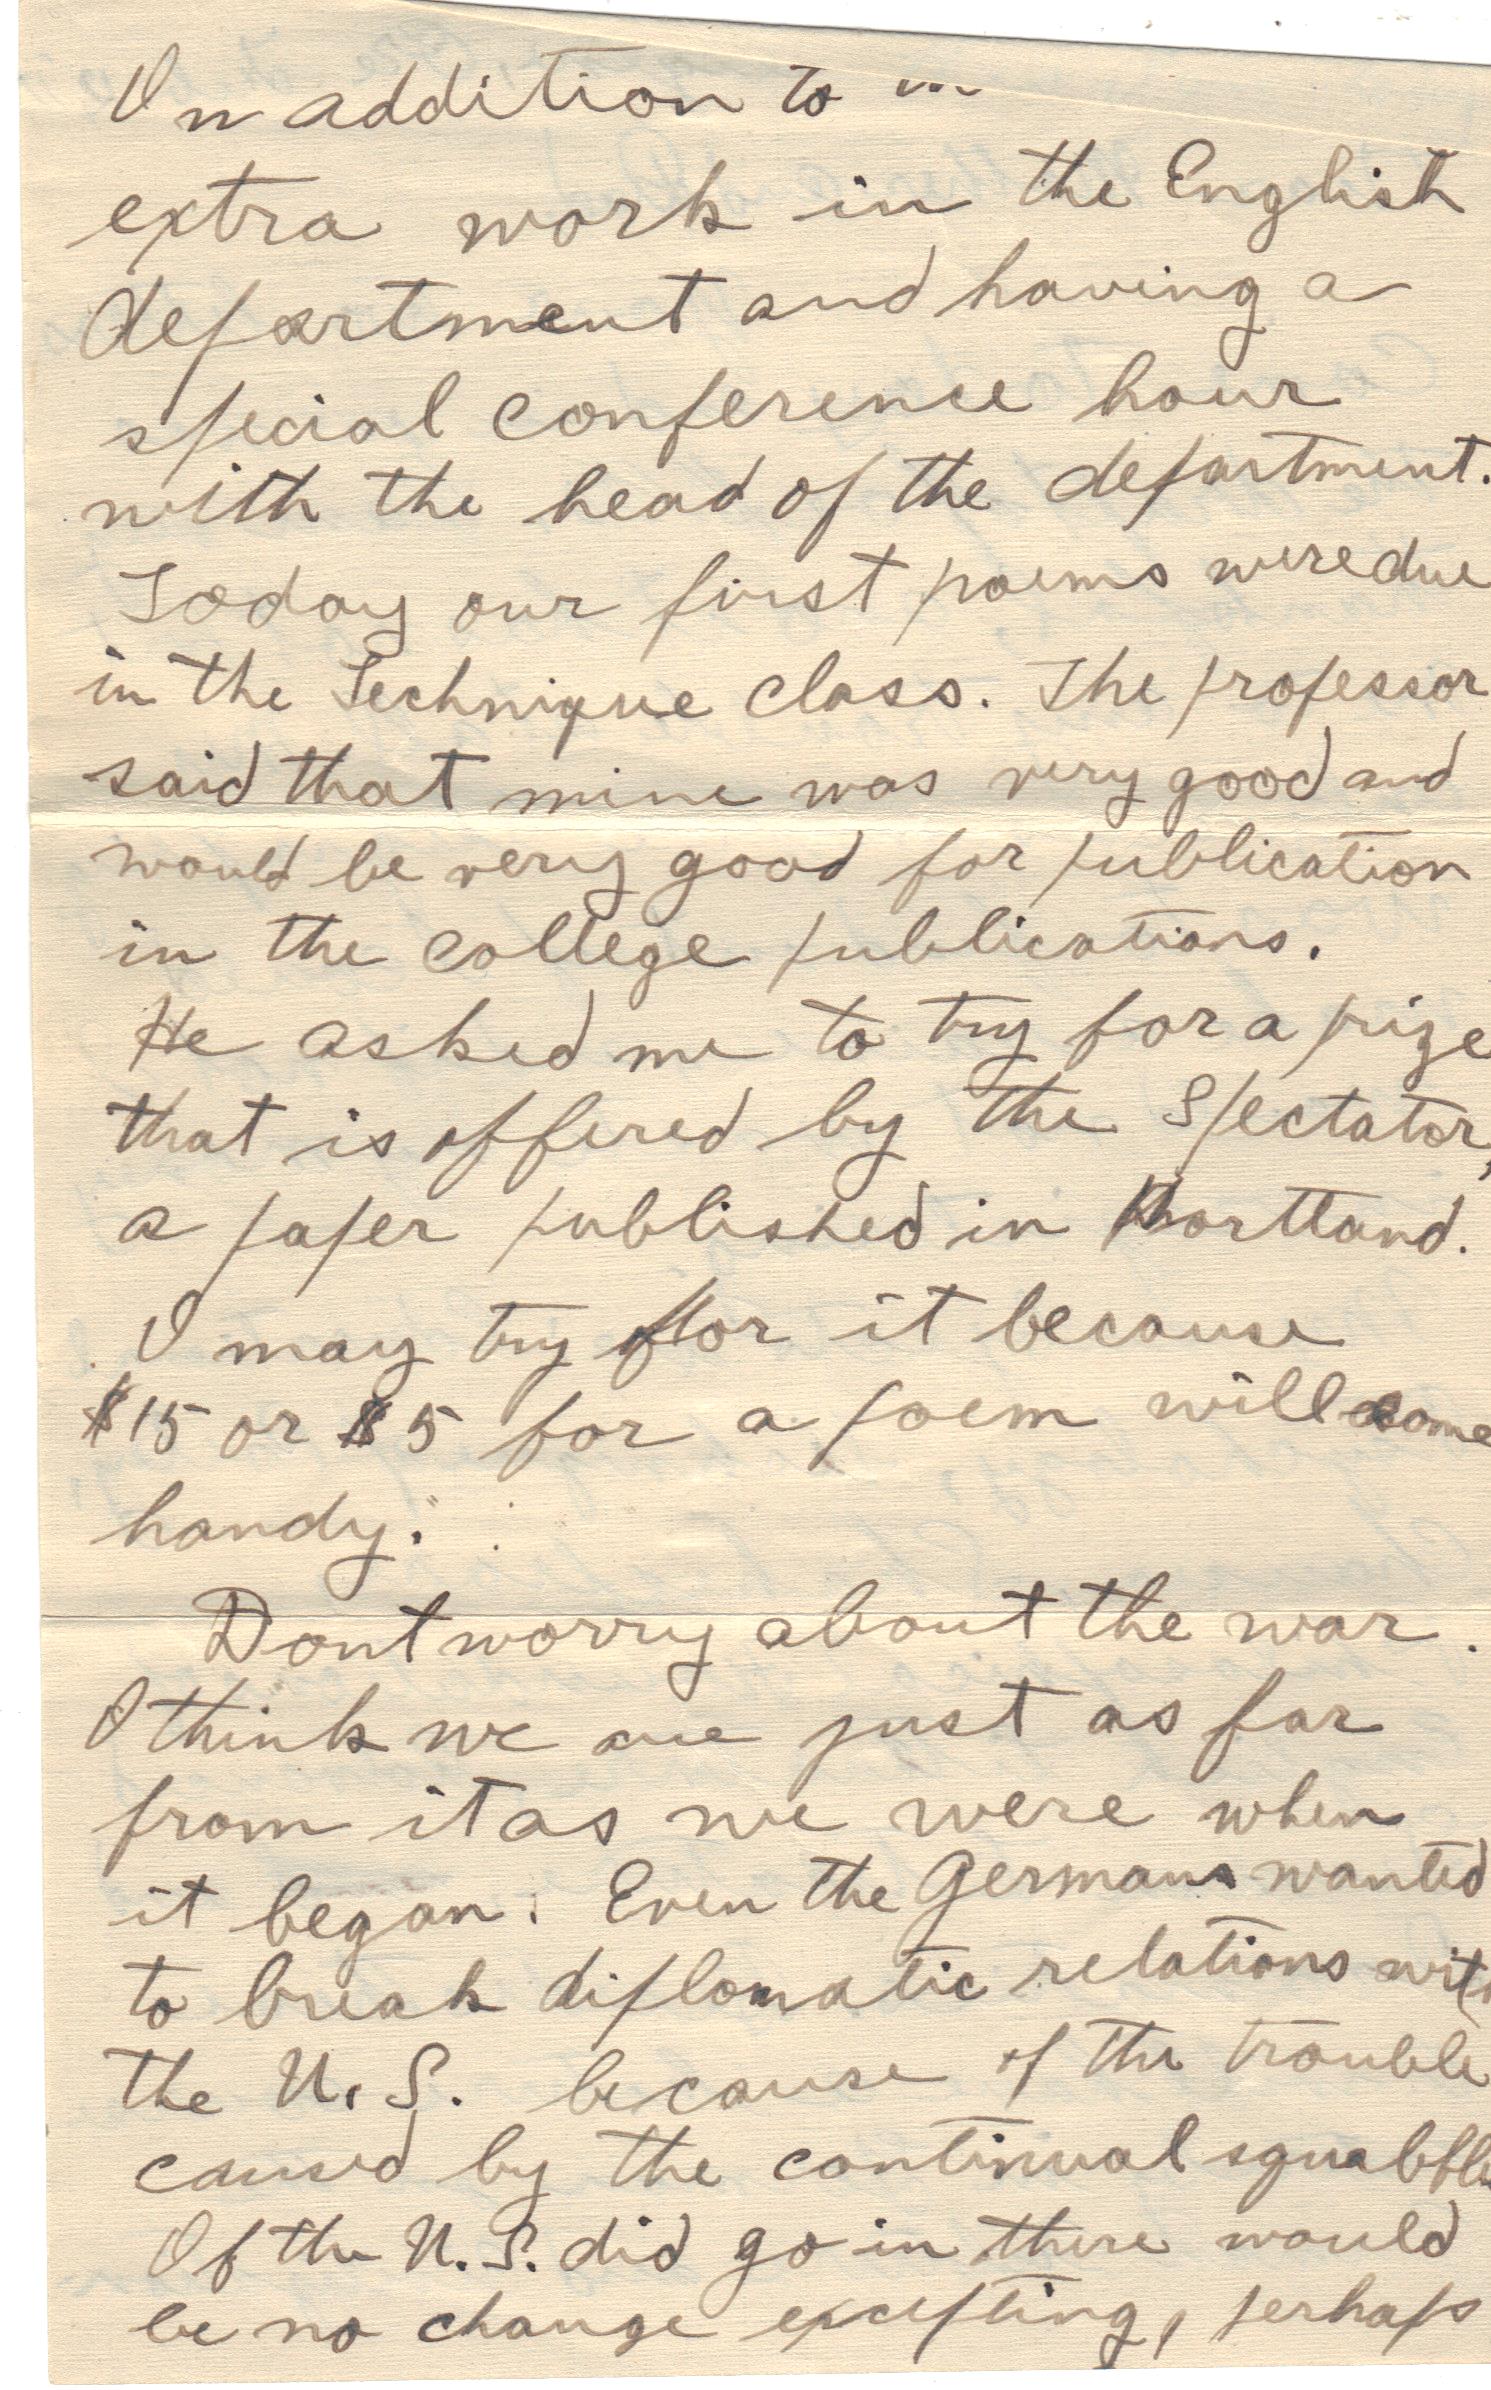 In addition to
extra work in the English
department and having a
special conference hour
with the head of the department.
Today our first poems were due
in the Technique class. The professor
said that mine was very good and
would be very good for publication
in the college publications.
He asked me to try for a prize
that is offered by the Spectator,
a paper published in Portland.
I may try for it because
$15 or $5 for a poem will come
handy.
Dont worry about the war.
I think we are just as far
from it as we were when
it began. Even the Germans wanted
to break diplomatic relations with
the U.S. because of the trouble
caused by the continual
If the U.S. did go in there would
be no change excepting, perhaps